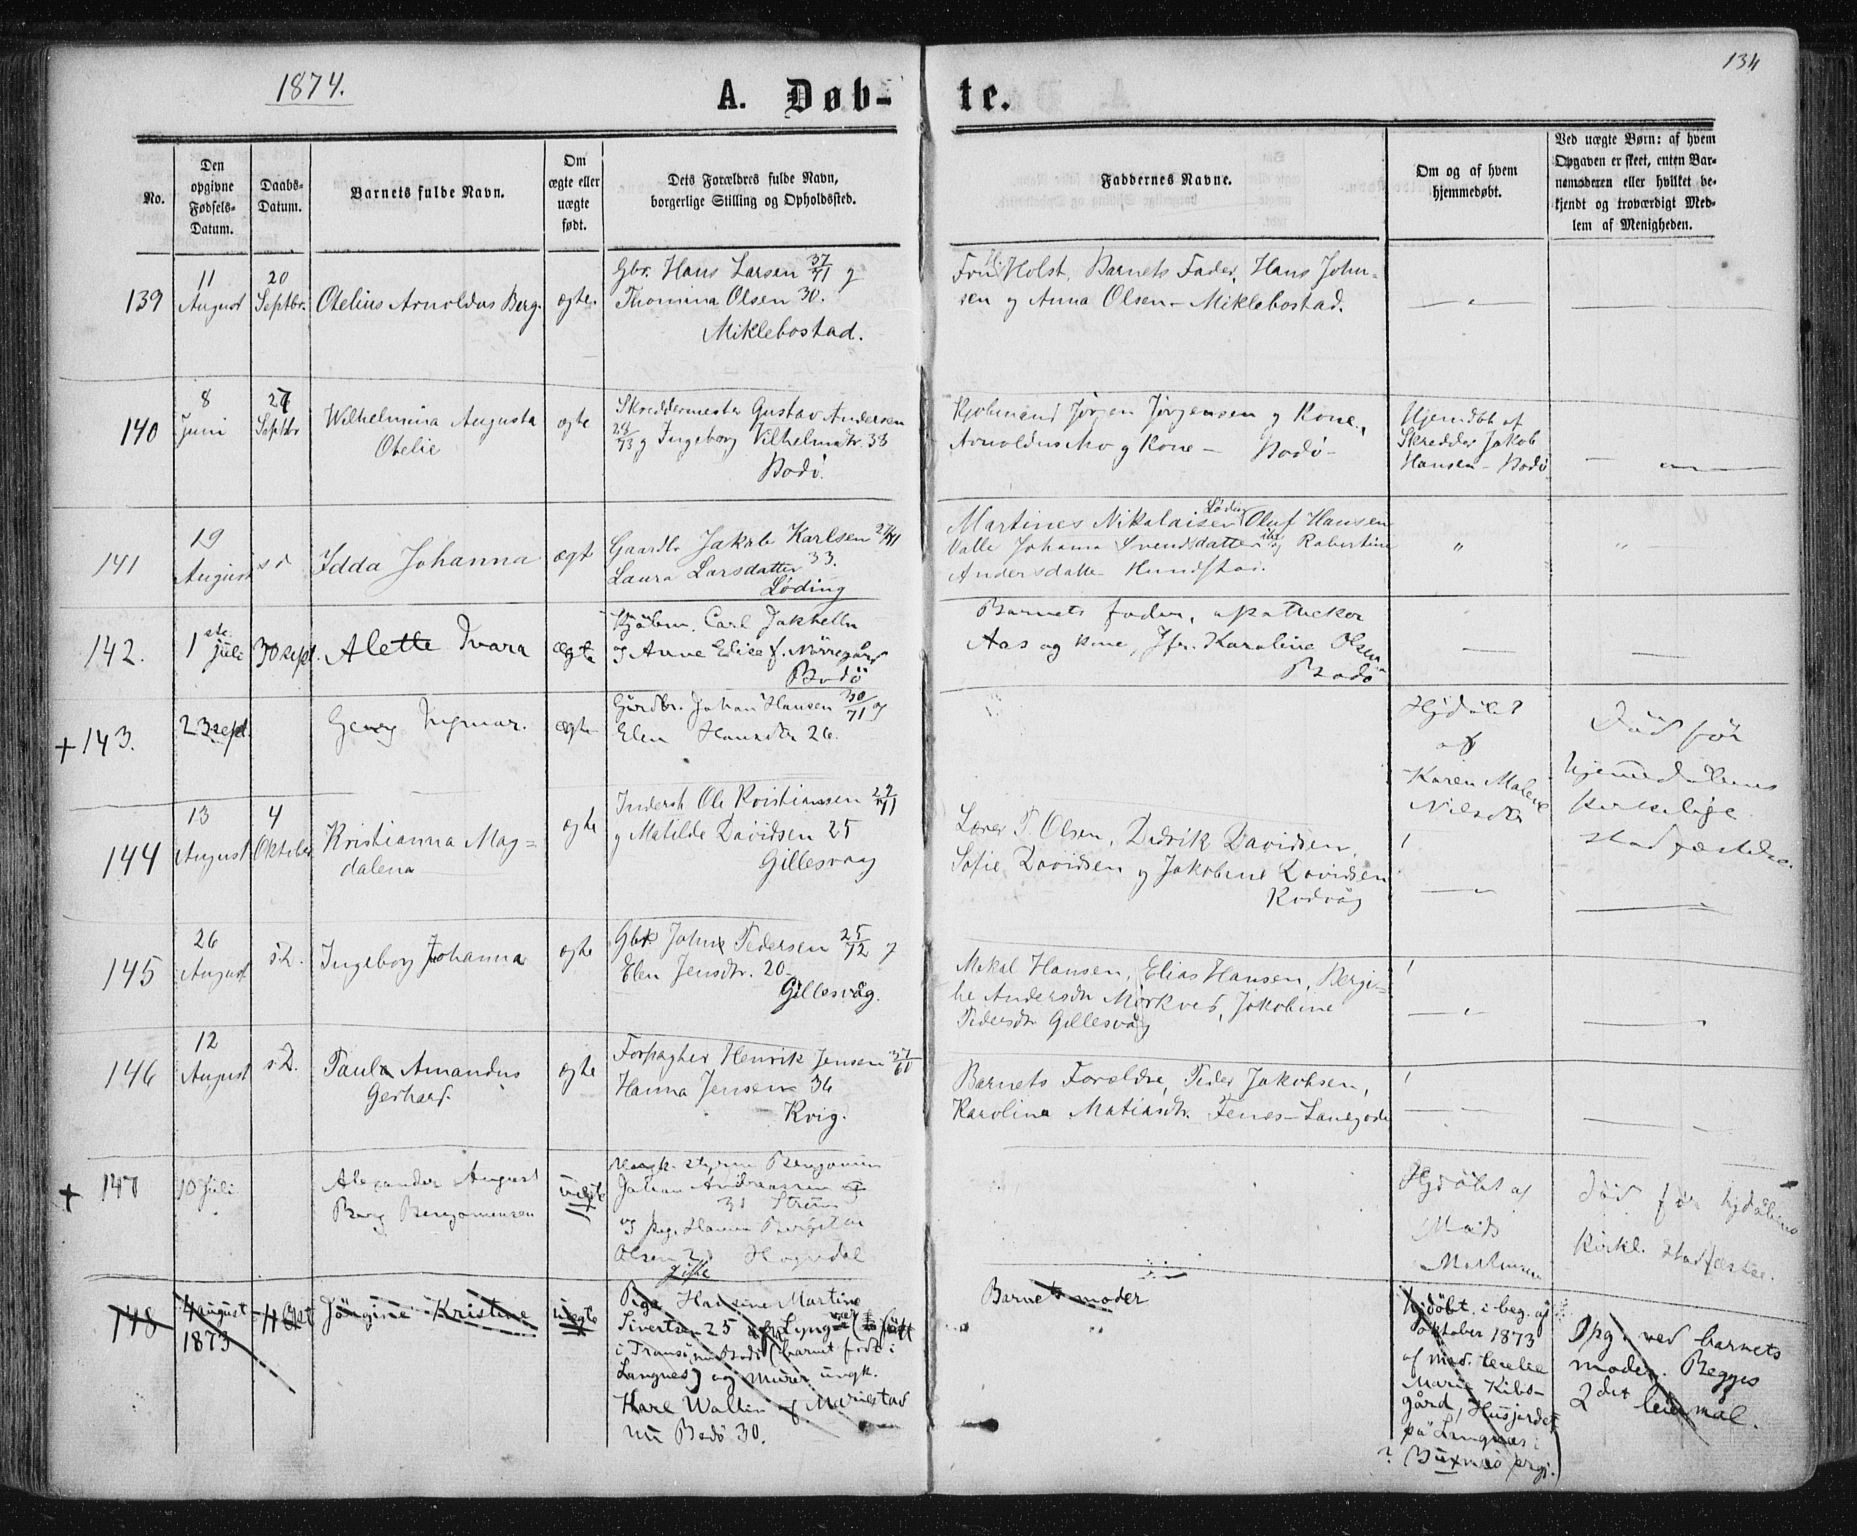 1874.
134
A. Døb-
te.
No.
Den opgivne Fødsels-Datum.
Daabs-Datum.
Barnets fulde Navn.
Om ægte eller uægte født.
Dets Forældres fulde Navn, borgerlige Stilling og Opholdssted.
Faddernes Navne.
Om og af hvem hjemmedøbt.
Ved uægte Børn: af hvem Opgaven er skeet, enten Barnemoderen eller hvilket bekjendt og troværdigt Medlem af Menigheden.
139
11 August
20 Septbr.
Otelius Arnoldus Berg.
ægte.
Gbr. Hans Larsen 37/71 g
Thomina Olsen 30.
Miklebostad.
Holst, Barnets Fader, Hans John-
sen g Anna Olsen - Miklebostad.
140
8 Juni
27 Septbr
Wilhelmina Augusta
Otelie
ægte
Skreddermester Gustav Andersen
28/73 g Ingeborg Vilhelmsdtr. 33
Bodø.
Kjøbmand Jørgen Jørgensen g Kone,
Arnoldus Mo g Kone - Bodø -
Hjemdøbt af
Skredder Jakob
Hansen - Bodø
141
19 August
s d
Idda Johanna
ægt
Gaardbr Jakob Karlsen 27/71
Laura Larsdatter 33.
Løding
Martines Nikolaisen Løding Oluf Hansen
Valle Johanna Svendsdatter ibd g Robertine
Andersdatter Hundstad.
142.
1ste juli
30 sept.
Alette Ivara
ægte
Kjøbm. Carl Jakhelln
g Anne Elise f. Nörregård
Bodö
Barnets fader, apotheker
Aas og kone, Jfr. Karoline Olsen
Bodö
+ 143.
23 sept.
Georg Ingmar.
ægte
Gårdbr. Johan Hansen 30/71 og
Elen Hansdtr 26.
Hjdöbt
af
Karen Malene
Nilsdtr
Död før
hjemmedåbens
kirkelige
stadfæstelse.
144
13 August
4 Oktober
Kristianna Mag=
dalena
ægte
Inderst Ole Kristiansen 29/71
g Matilde Davidsen 25
Gillesvaag
Lærer P. Olsen, Didrik Davidsen,
Sofie Davidsen g Jakobine Davidsen
Kodvåg
145
26 August
s.D.
Ingeborg Johanna
ægte
Gbr John Pedersen 25/72 g
Elen Jensdtr. 20
Gillesvåg.
Mikal Hansen, Elias Hansen, Bergi=
the Andersdtr Mörkved, Jakobine
Pedersdtr Gillesvåg
146
12 August
s.D.
Paul Amandus
Gerhard.
ægte
Forpagter Henrik Jensen 37/61
Hanna Jensen 36
Kvig.
Barnets Forældre, Peder Jakobsen,
Karoline Matiasdtr. Fenes - Landegode
+ 147
10 Juli
Alexander August
Berg Benjaminsen
uægte
Ungk. styrm Benjamin
Johan Andreassen
31 Ström
og pige Hanna Bergitta
Olsen 25 Hognedal
Hjdöbt af
Mads
Död før hjdåbens
kirkl. stadfæstelse.
148
4 august 1873
4 Okt
Jörgine Kristine
uægte
Pige Hansine Martine
Sivertsen 25
i Tromsö, nu Bodö (barnet født i
Langnes) og murer ungk.
Karl Wallin af Mariestad
nu Bodö 30.
Barnets moder
Hjdöbt i beg. af
oktober 1873
af mad.
Marie Kibs-
gård, Husjordet
på Langnæs i
Buxnæs prgj.
Opg. ved barnets
moder. Begges
2det leiermål.